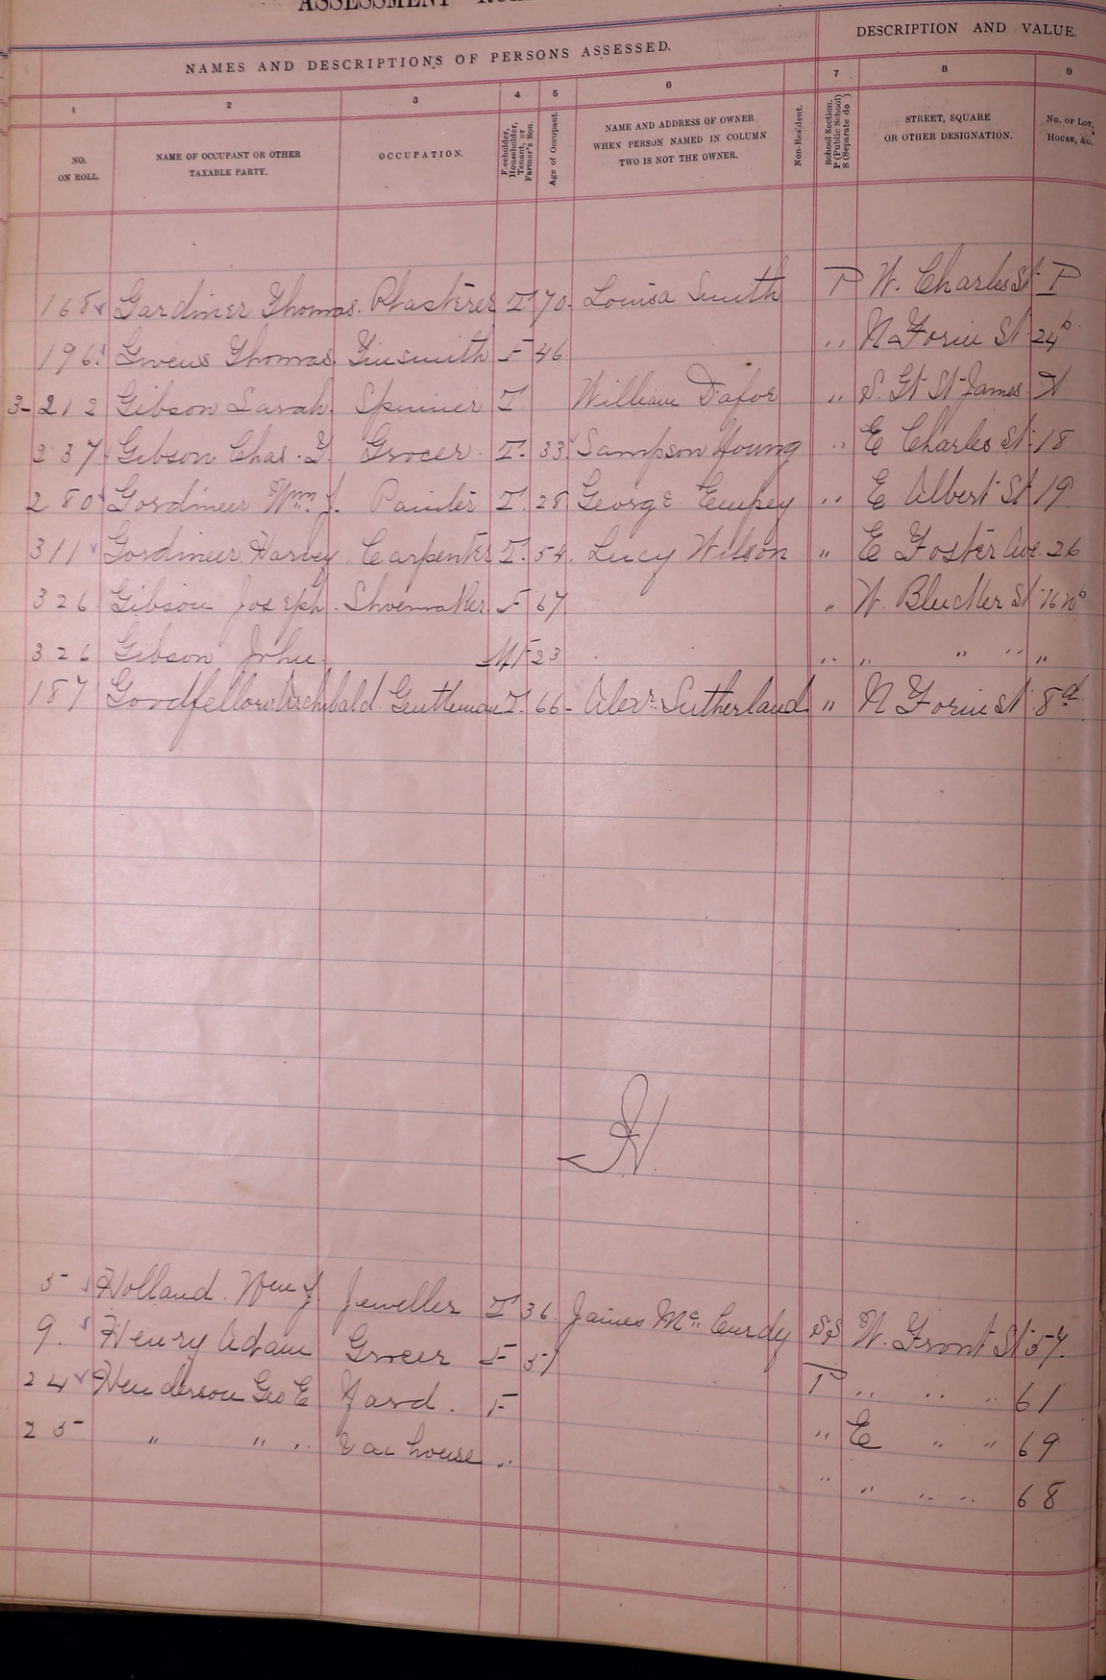 ASSESSMENT
NAMES AND DESCRIPTIONS OF PERSONS ASSESSED.
DESCRIPTION AND VALUE.
1 2 3 4 5 6 7 8 9
NO. ON ROLL.
NAME OF OCCUPANT OR OTHER TAXABLE PARTY.
OCCUPATION.
Freeholder, Householder, Tenant, or Farmer's Son.
Age of Occupant.
NAME AND ADDRESS OF OWNER WHEN PERSON NAMED IN COLUMN TWO IS NOT THE OWNER.
Non-Resident.
School Section. P (Public School) S (Separate do )
STREET, SQUARE OR OTHER DESIGNATION.
No. of Lot, House, &c.
168 Gardiner Thomas. Plasterer T 70. Louisa Smith P W. Charles St P
196 Givens Thomas. Tinsmith F 46 " N Forin St 24b
3-212 Gibson Sarah. Spinner T William Dafoe " S. Gt St James
237 Gibson Chas. T. Grocer T. 33 Sampson Young " E Charles St 18
280 Gordineer Wm J. Painter T. 28 George Empey " E Albert St 19
311 Gordineer Harvey Carpenter T. 54. Lucy Wilson " E Foster Ave. 26
326 Gibson Joseph. Shoemaker F 67 " W. Bleecker St
326 Gibson John MF 23 " " " " "
187 Goodfellow Archibald. Gentleman T. 66 - Alexr. Sutherland " N Forin St 8d
H
5 Holland. Wm J Jeweller T 36 James McCurdy SS W. Front St 57.
9. Henry Adam Grocer F 51 P " " " 61
24 Henderson Geo E Yard. F " E " " 69
25 " " " Vac house " " " " " 68